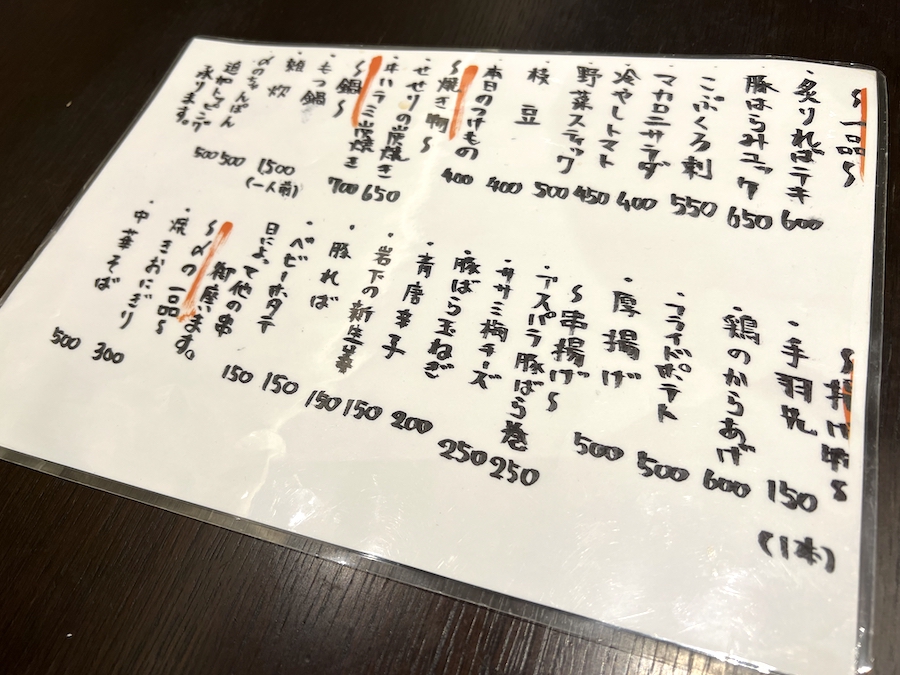 〜一品〜
・炙りればテキ 600
・豚はらみユッケ 650
・こぶくろ刺 550
・マカロニサラダ 400
・冷やしトマト 450
・野菜スティック 500
・枝豆 400
・本日のつけもの 400
〜焼き物〜
・せせりの炭焼き 650
・牛ハラミ炭焼き 700
〜鍋〜
・もつ鍋 1500(一人前)
・雑炊 500
・〆のちゃんぽん 500
追加トッピング
承ります。
〜揚げ物〜
・手羽先 150(1本)
・鶏のからあげ 600
・フライドポテト 500
・厚揚げ 500
〜串揚げ〜
・アスパラ豚ばら巻 250
・ササミ梅チーズ 250
・豚ばら玉ねぎ 200
・青唐辛子 150
・岩下の新生姜 150
・豚れば 150
・ベビーホタテ 150
日によって他の串
御座います。
〜〆の一品〜
・焼きおにぎり 300
・中華そば 500